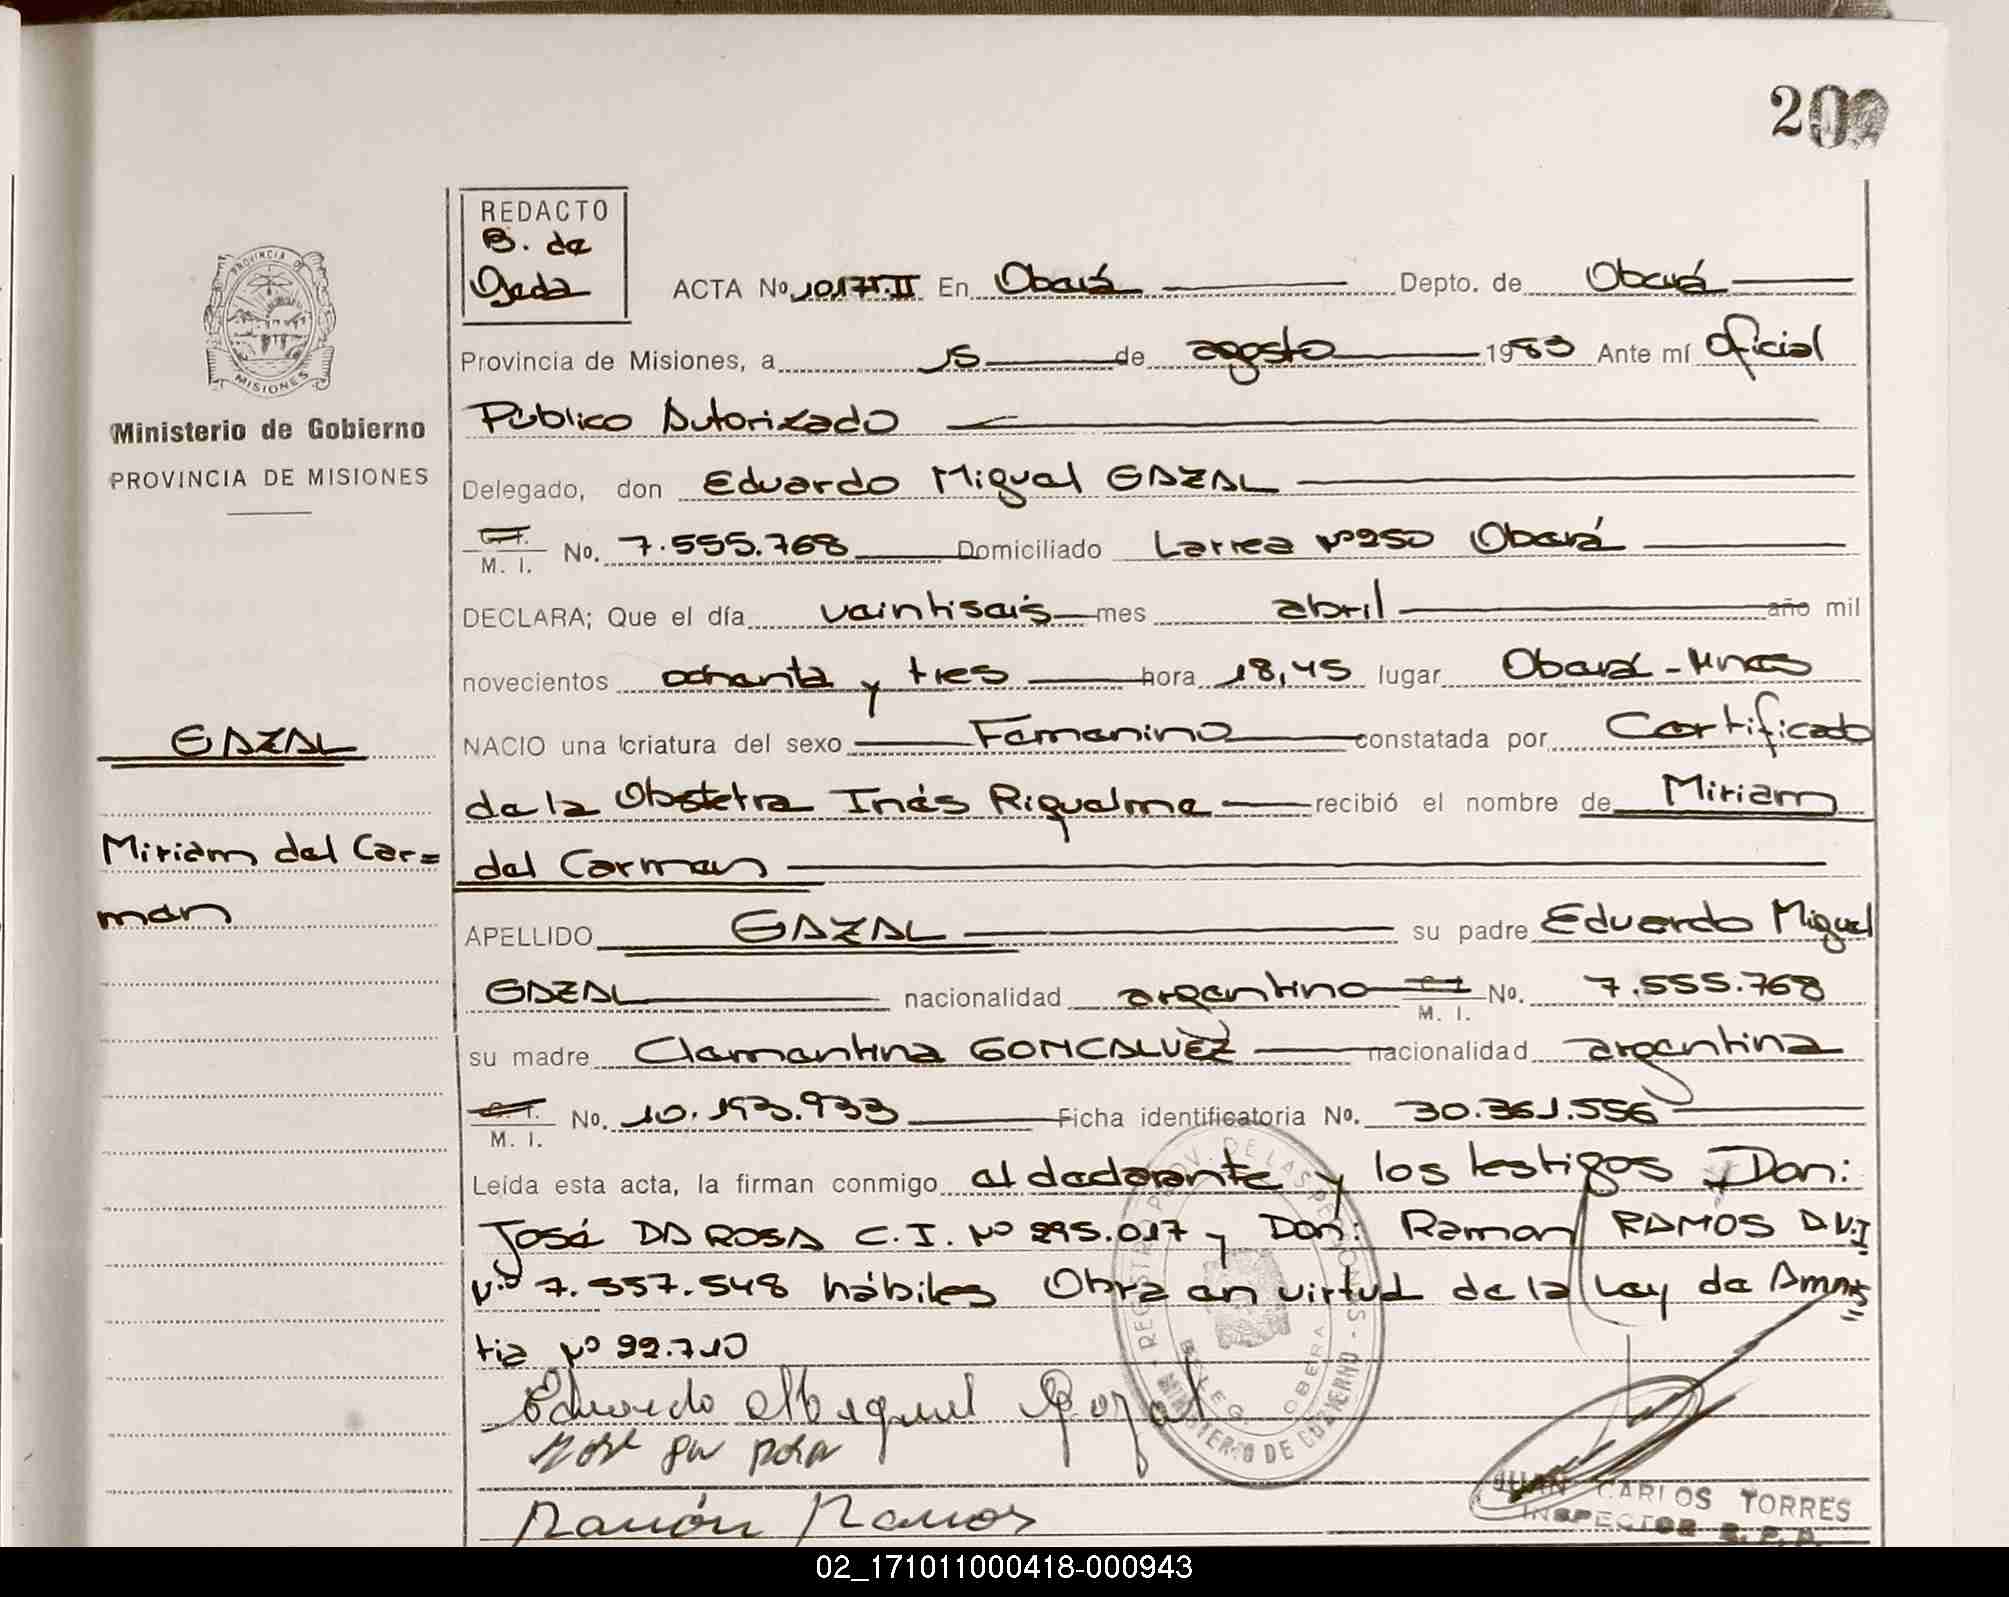 REDACTO
B. de
Ojeda
ACTA No. 1017T.II En Oberá Depto. de Oberá
PROVINCIA DE
MISIONES
Provincia de Misiones, a 15 de agosto 1983 Ante mí Oficial
Ministerio de Gobierno
Público Autorizado
PROVINCIA DE MISIONES
Delegado, don Eduardo Miguel GAZAL
C.I.
M. I. No. 7.555.768 Domiciliado Larrea Nº250 Oberá
DECLARA; Que el día veintiseis mes abril año mil
novecientos ochenta y tres hora 18,45 lugar Oberá - Mnes
GAZAL
NACIO una criatura del sexo Femenino constatada por Certificado
de la Obstetra Inés Riquelme recibió el nombre de Miriam
Miriam del Car=
men
del Carmen
APELLIDO GAZAL su padre Eduardo Miguel
GAZAL nacionalidad argentino C.I. M. I. No. 7.555.768
su madre Clementina GONCALVEZ nacionalidad argentina
C.I. M. I. No. 10.193.933 Ficha identificatoria No. 30.361.556
Leída esta acta, la firman conmigo el declarante y los testigos Don:
José DA ROSA C.I. Nº 295.017 y Don: Ramon RAMOS D.N.I
Nº 7.557.548 hábiles Obra en virtud de la Ley de Amnis
tia Nº 22.710
Eduardo Miguel Gazal
Ramón Ramos
REGISTRO PROV. DE LAS PERSONAS - MINISTERIO DE GOBIERNO
DELEG. OBERA
JUAN CARLOS TORRES
INSPECTOR R. P. P.
02_171011000418-000943